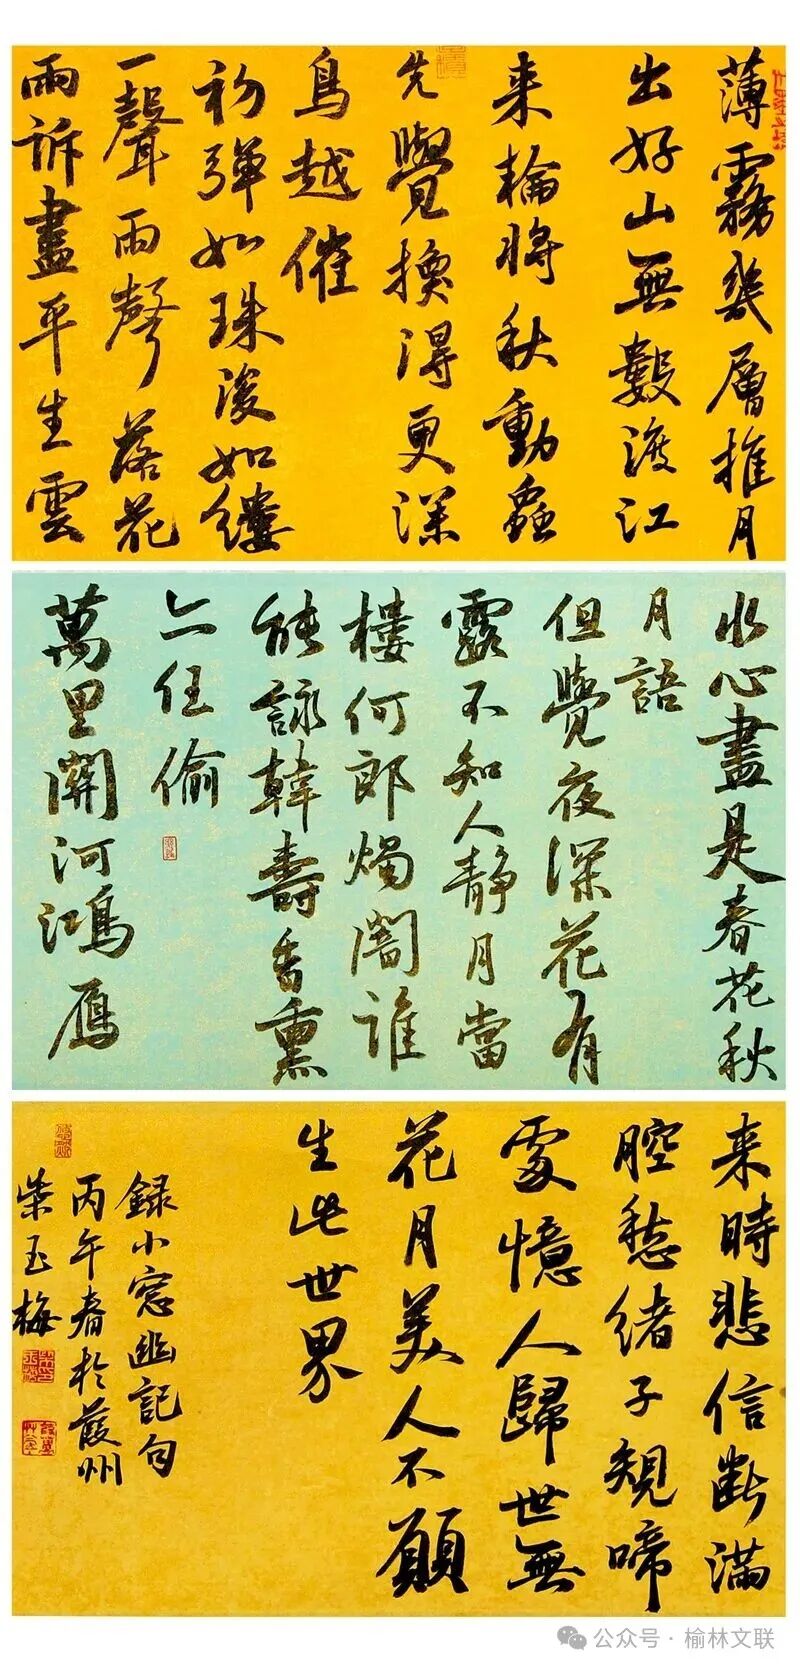 薄霧幾層推月
出好山無數渡江
来輪將秋動蟲
先覺換得更深
鳥越催
初彈如珠後如縷
一聲兩聲落花
雨訴盡平生雲
水心盡是春花秋
月語
但覺夜深花有
露不知人静月當
樓何郎燭闇誰
能詠韓壽香熏
亦任偷
萬里關河鴻雁
来時悲信斷滿
腔愁緒子規啼
處憶人歸世無
花月美人不願
生此世界
録小窓幽記句
丙午春於葭州
柴玉梅
公众号·榆林文联